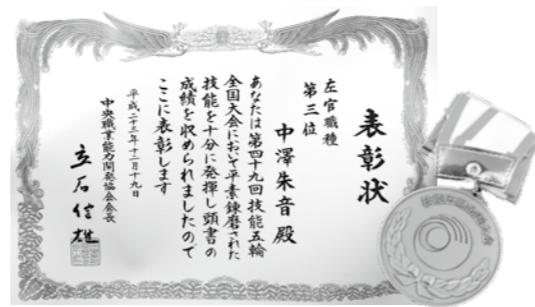 表彰状
左官職種
第三位
中澤朱音殿
あなたは第四十九回技能五輪
全国大会において平素錬磨された
技能を十分に発揮し頭書の
成績を収められましたので
ここに表彰します
平成二十三年十二月十九日
中央職業能力開発協会会長
立石信雄